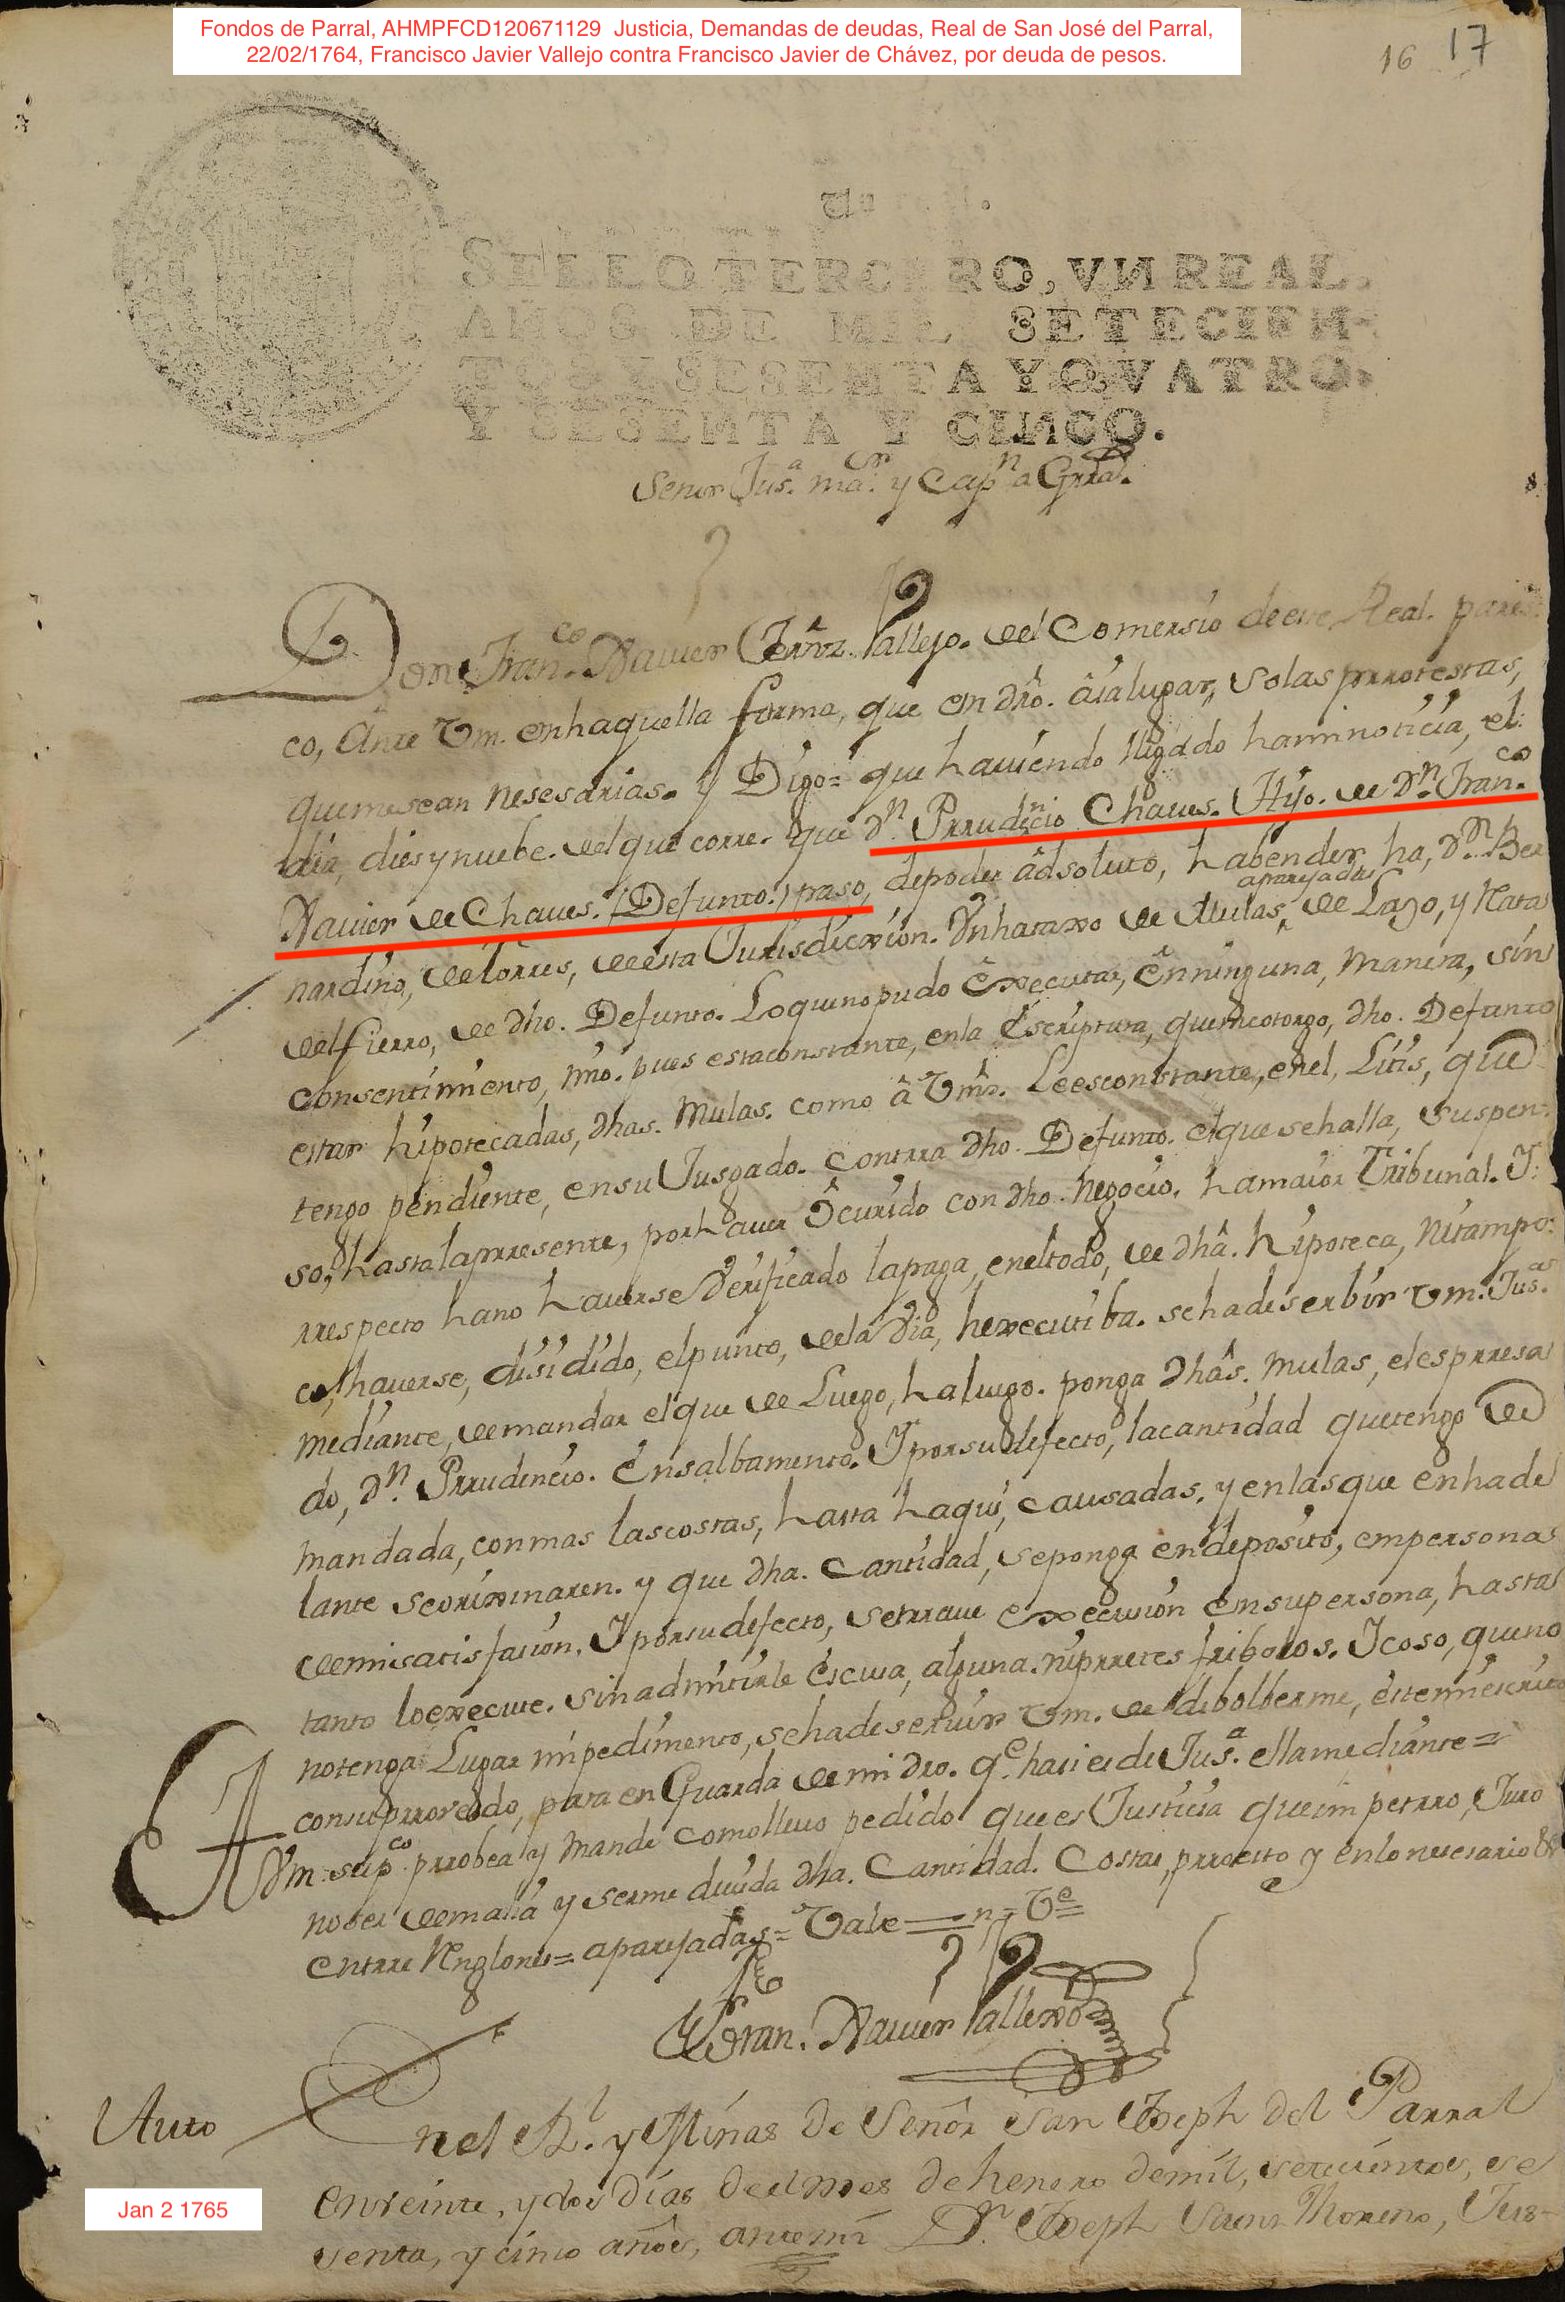 Fondos de Parral, AHMPFCD120671129 Justicia, Demandas de deudas, Real de San José del Parral,
22/02/1764, Francisco Javier Vallejo contra Francisco Javier de Chávez, por deuda de pesos.
16 17
SELLO TERCERO, VN REAL,
AÑOS DE MIL SETECIEN-
TOS Y SESENTA Y QVATRO.
Y SESENTA Y CINCO.
Señor Jusª. maor. y Capn a Grral.
Don Franco. Xavier Fernz. Vallejo. del Comersio de este Real. pares-
co, Ante Vm. enhaquella forma, que en dho. âialugar, solas prrotestas,
quemesean nesesarias. y Digo= que haviendo lligado haminoticia, el
dia, diesynuebe. del que corre. que dn. Prrudencio Chaves. Hijo. de Dn. Franco.
Xavier de Chaves. (Defunto.) paso, depoder âdsoluto, habender ha, dn. Ber
nardino, de torres, de esta Jurisdicxion. Vnhataxo de Mulas, aparejadas de Lazo, y Nata
del fierro, de dho. Defunto. Loquenopudo Êxecutar, Ênninguna, manera, sin
consentimiento, mio. pues estaconstante, enla Escriptura, quemeotorgo, dho. Defunto
estar hipotecadas, dhas. Mulas. como â Vmd. Leesconstante, enel, Litis, que
tengo pendiente, ensu Jusgado. Contrra dho. Defunto. elquesehalla, suspen-
so, hastalaprresente, porhaver Ôcurido con dho. negocio, hamaior Tribunal. Y
rrespecto hano haverse Verificado lapaga, eneltodo, de dhâ. hipoteca, nitampo-
co, haverse, disidido, elpunto, dela Via, hexecutiba. sehadeserbir Vm. Jusas.
mediante, demandar elque de Luego, haluego. ponga dhâs. mulas, elesprresa
do, dn. Prrudencio. Ensalbamento. Y porsudefecto, lacantidad quetengo de
mandada, conmas lascostas, hasta haqui, causadas. y enlasque enhade
lante seorixinaren. y que dha. Cantidad, seponga endeposito, empersona
demisatisfasion. Y porsudefecto, setrrave execusion ensupersona, hasta
tanto loexecute. sinadmitirle Escusa, alguna. niprretes fribolos. Y coso, queno
notenga Lugar mipedimento, sehadeservir Vm. de debolberme, estemiescrito
consuprroveido, para en Guarda de mi dro. qe. hasi es de Jusª. ellamediante=
AVm. supco. prrobea y mande comollevo pedido que es Justicia queimpetrro, Juro
noser demalia y serme devida dha. Cantidad. Costas, prrotesto y enlo nesesario &
entrre Renglones= aparejadas= Vale
Fran. Xavier Vallexo
Auto
En el Rl. y Minas de Señor San Joseph del Parral
enveinte, y dos dias deel mes de henero demil, setecientos, se
senta, y cinco años, antemi Dn. Joseph Moreno, Jus-
Jan 2 1765